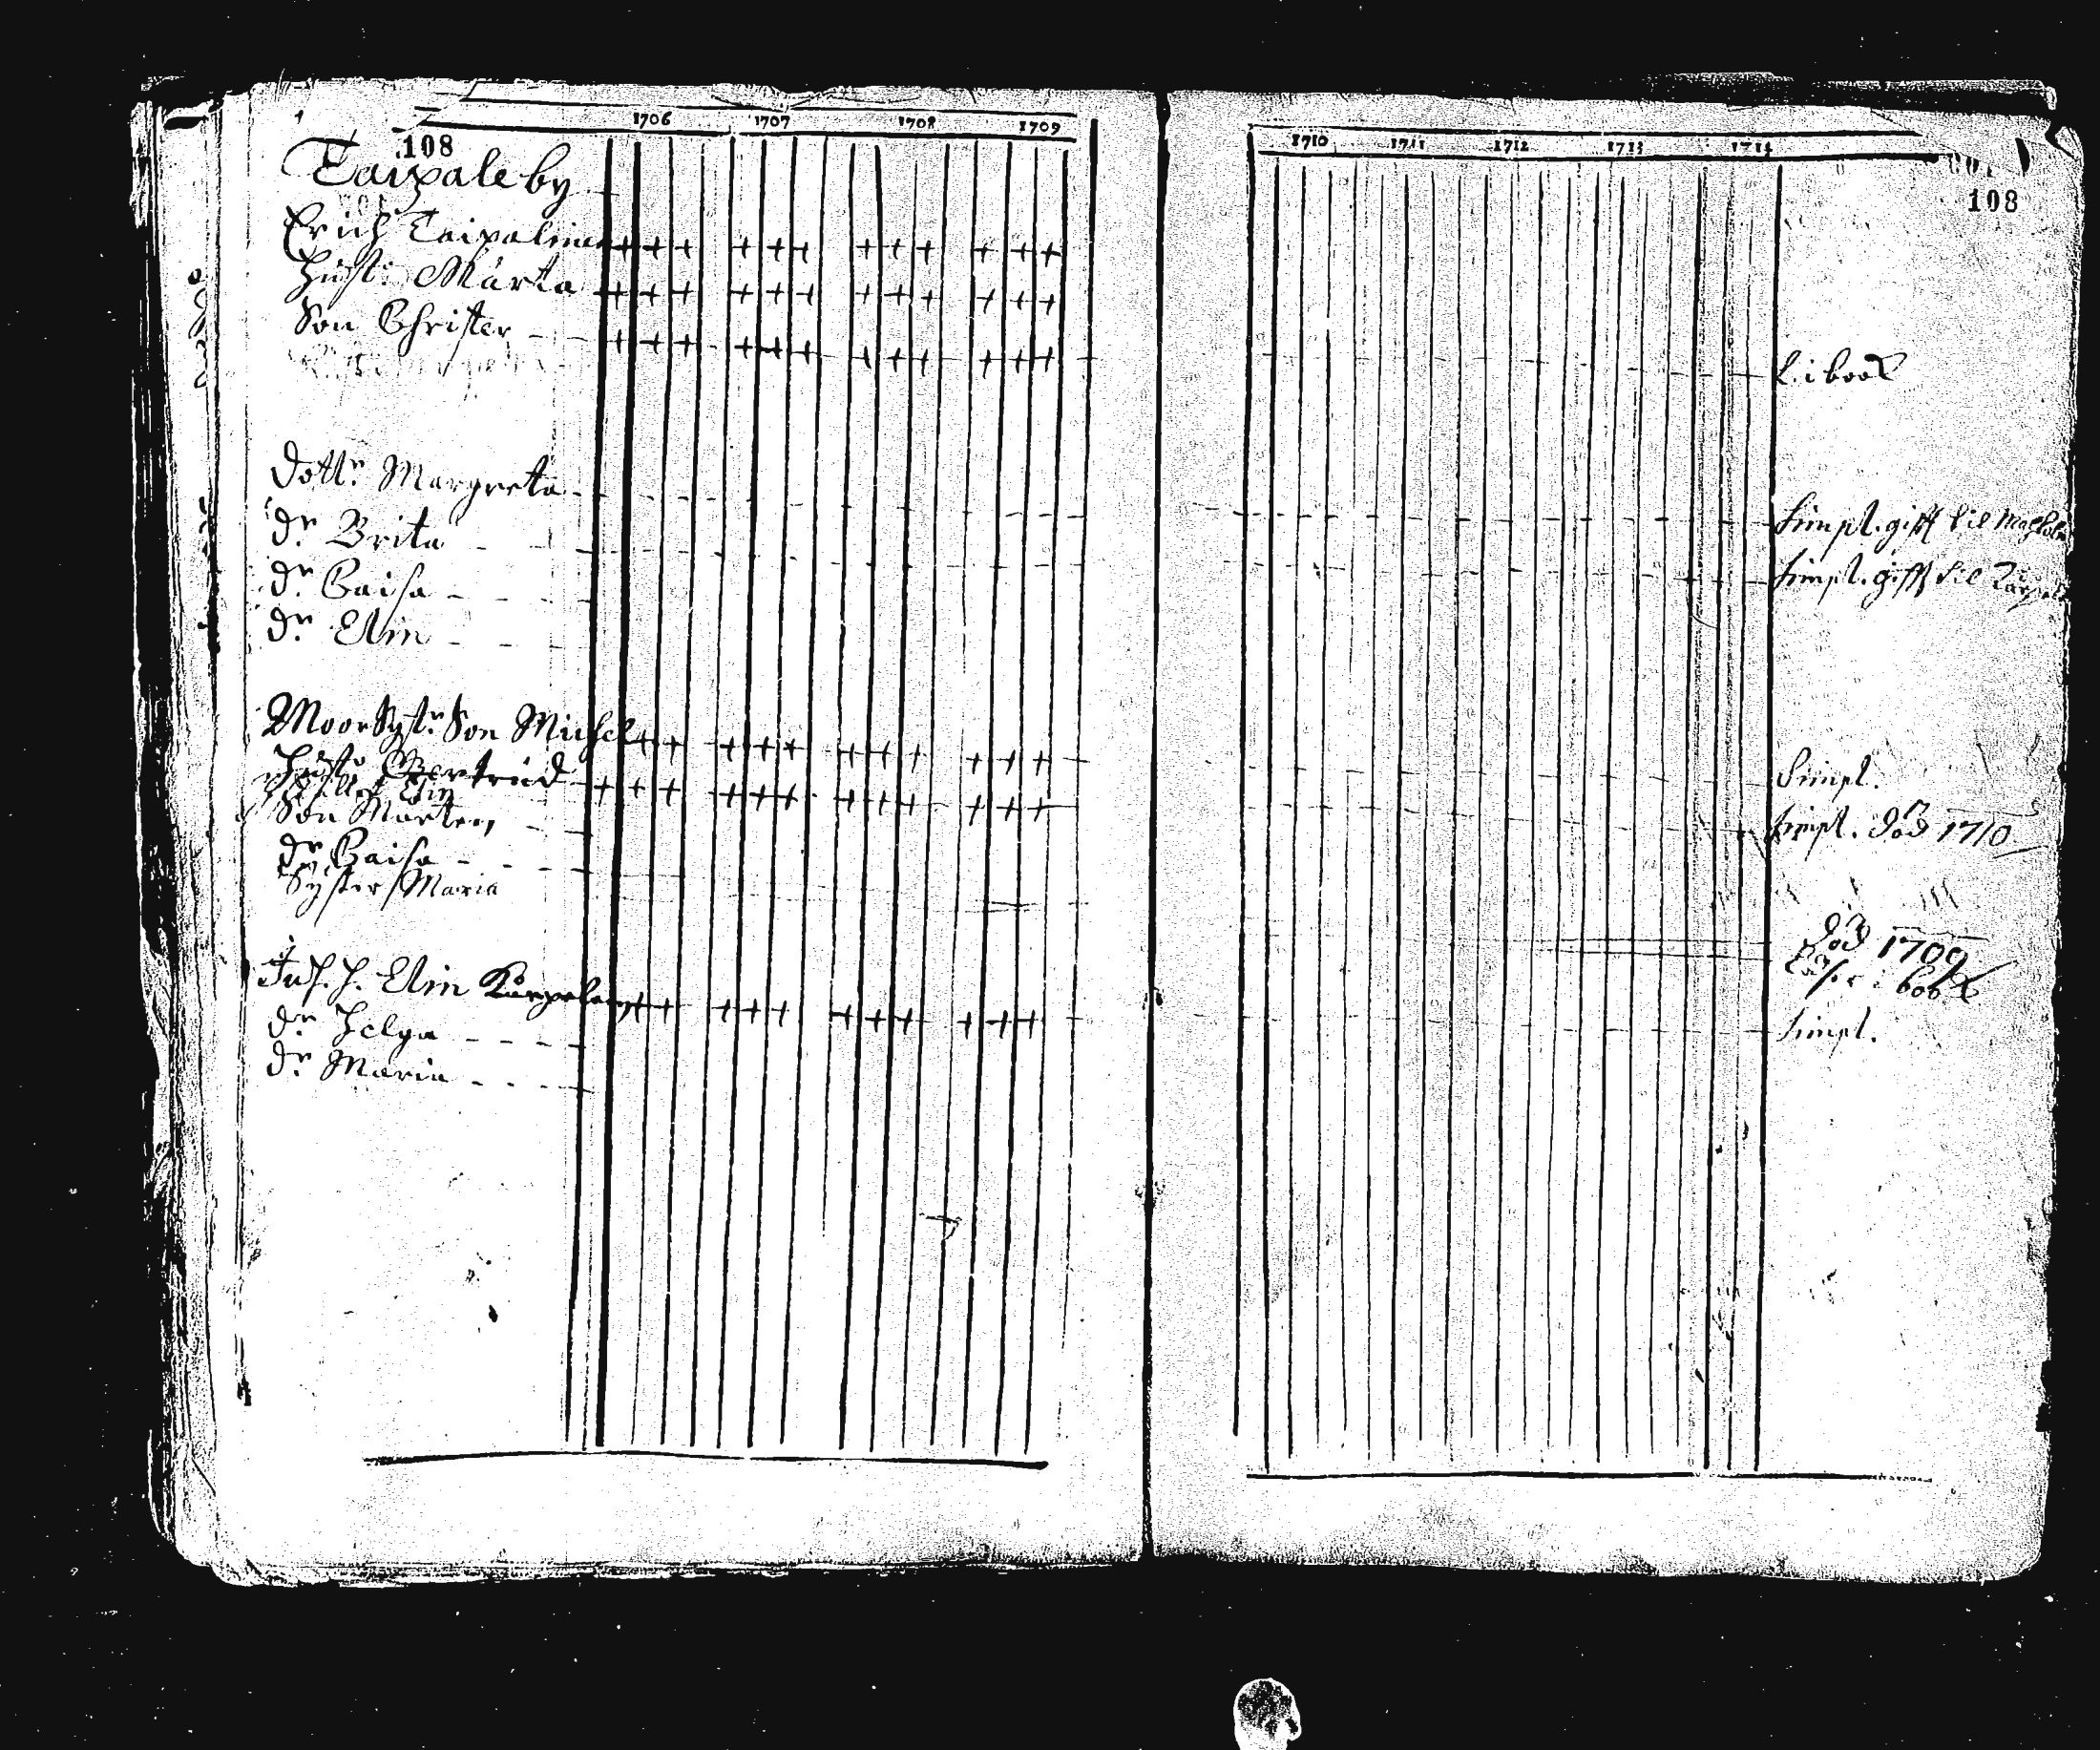 1706 1707 1708 1709
108
Taipale by
Erich Taipalinen
Hust: Märta
Son Christer
Dottr: Margreta
Dr: Brita
Dr: Caisa
Dr: Elin
Moor Systr: Son Michel
Hust: Gertrud
Elin
Son Mårten
Dr: Caisa
Syster Maria
Inh. h. Elin Kurpelain
Dr: Helga
Dr: Maria
1710 1711 1712 1713 1714
108
L. i book
simpl. gifft til
simpl. gifft til
Simpl.
simpl. död 1710
död 1709
Läser i book
simpl.